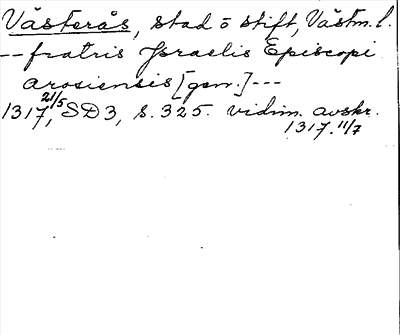 Västerås, stad o stift, Västm. l.
-- fratris Israelis Episcopi
arosiensis [gen.] ---
1317 21/5, SD 3, s. 325. vidim. avskr.
1317. 11/7